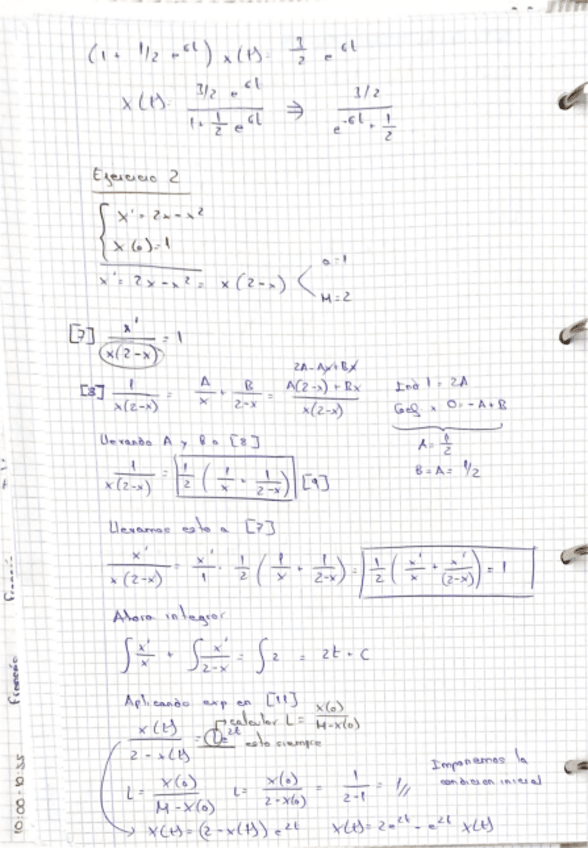 (1 + 1/2 e^6t) x(t) = 3/2 e^6t
x(t) = (3/2 e^6t) / (1 + 1/2 e^6t) ⇒ (3/2) / (e^-6t + 1/2)
Ejercicio 2
{ x' = 2x - x²
x(0) = 1
x' = 2x - x² = x(2-x) < a = 1
M = 2
[7] x' / x(2-x) = 1
[8] 1 / x(2-x) = A/x + B/(2-x) = (A(2-x) + Bx) / x(2-x)
2A - Ax + Bx
Ind 1 = 2A
Coef x 0 = -A + B
A = 1/2
B = A = 1/2
Llevando A y B a [8]
1 / x(2-x) = 1/2 (1/x + 1/(2-x)) [9]
Llevamos esto a [7]
x' / x(2-x) = x'/1 · 1/2 (1/x + 1/(2-x)) = 1/2 (x'/x + x'/(2-x)) = 1
Ahora integrar
∫ x'/x + ∫ x'/(2-x) = ∫ 2 = 2t + C
Aplicando exp en [11]
x(t) / (2 - x(t)) = L e^2t
calcular L = x(0) / (M - x(0))
esto siempre
L = x(0) / (M - x(0)) L = x(0) / (2 - x(0)) = 1 / (2-1) = 1//
Imponemos la
condicion inicial
x(t) = (2 - x(t)) e^2t x(t) = 2e^2t - e^2t x(t)
Francés
10:00-10:55